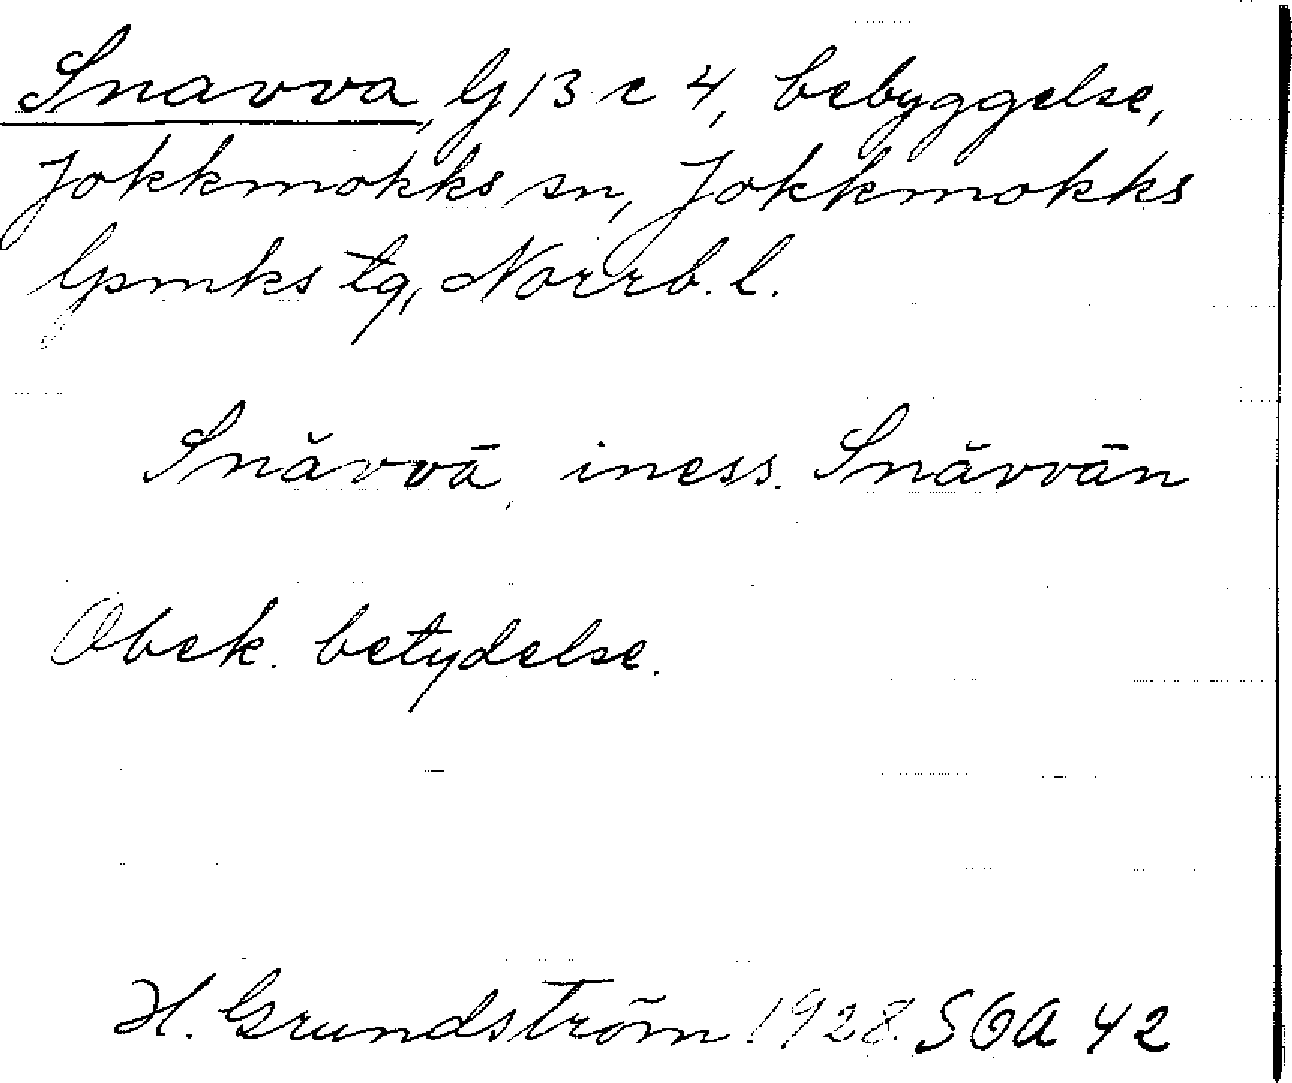 Snavva, G 13 c 4, bebyggelse,
Jokkmokks sn, Jokkmokks
lpmks tg, Norrb. l.
Snăvvā, iness. Snăvvān
Obek. betydelse.
H. Grundström 1928. SOA 42